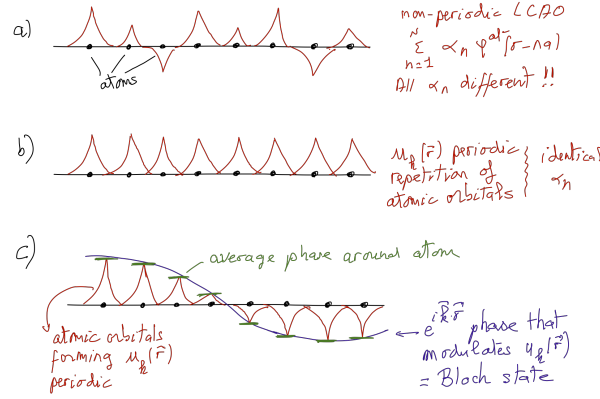 a)
non-periodic LCAO
N
∑ αₙ φᵃᵗ(r-na)
n=1
All αₙ different !!
atoms
b)
uₖ(r⃗) periodic
repetition of
atomic orbitals
identical
αₙ
c)
average phase around atom
atomic orbitals
forming uₖ(r⃗)
periodic
e^{ik⃗·r⃗} phase that
modulates uₖ(r⃗)
= Bloch state